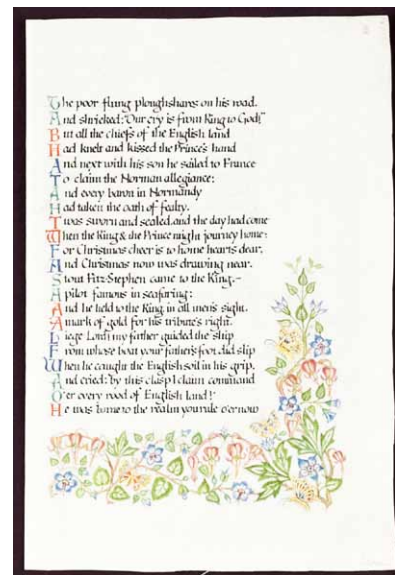 The poor flung ploughshares on his road.
And shrieked: "Our cry is from King to God!"
But all the chiefs of the English land
Had knelt and kissed the Prince's hand
And next with his son he sailed to France
To claim the Norman allegiance:
And every baron in Normandy
Had taken the oath of fealty.
Twas sworn and sealed, and the day had come
When the King & the Prince might journey home:
For Christmas cheer is to home hearts dear,
And Christmas now was drawing near.
Stout Fitz-Stephen came to the King,-
A pilot famous in seafaring;
And he held to the King, in all men's sight,
A mark of gold for his tribute's right.
Liege Lord! my father guided the ship
From whose boat your father's foot did slip
When he caught the English soil in his grip,
And cried: 'by this clasp I claim command
O'er every rood of English land!'
He was borne to the realm you rule o'er now